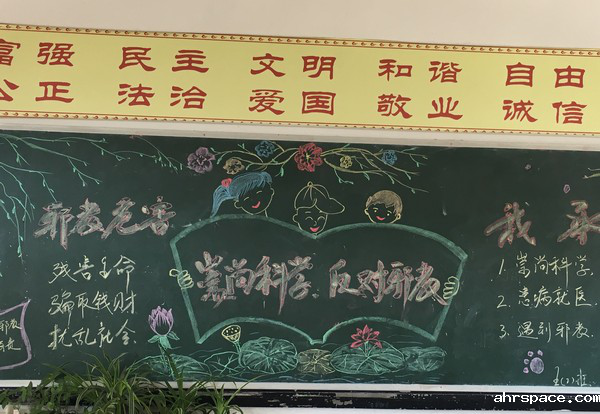 富强 民主 文明 和谐 自由
公正 法治 爱国 敬业 诚信
邪教危害
残害生命
骗取钱财
扰乱社会
崇尚科学 反对邪教
我承
1. 崇尚科学
2. 患病就医
3. 遇到邪教
ahrspace.com